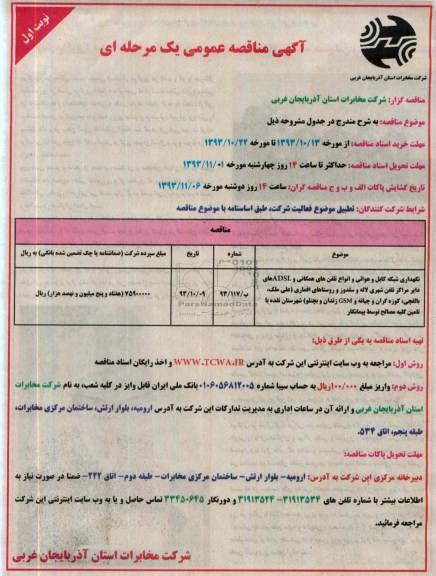 نوبت اول
آگهی مناقصه عمومی یک مرحله ای
شرکت مخابرات استان آذربایجان غربی
مناقصه گزار: شرکت مخابرات استان آذربایجان غربی
موضوع مناقصه: به شرح مندرج در جدول مشروحه ذیل
مهلت خرید اسناد مناقصه: از مورخه ۱۳۹۳/۱۰/۱۳ تا مورخه ۱۳۹۳/۱۰/۲۲
مهلت تحویل اسناد مناقصه: حداکثر تا ساعت ۱۴ روز چهارشنبه مورخه ۱۳۹۳/۱۱/۰۱
تاریخ گشایش پاکات الف و ب ج مناقصه گران: ساعت ۱۴ روز دوشنبه مورخه ۱۳۹۳/۱۱/۰۶
شرایط شرکت کنندگان: تطبیق موضوع فعالیت شرکت، طبق اساسنامه با موضوع مناقصه
مناقصه
موضوع شماره تاریخ مبلغ سپرده شرکت (ضمانتنامه یا چک تضمین شده بانکی) به ریال
نگهداری شبکه کابل و هوائی و انواع تلفن های همگانی و ADSLهای
دایر مراکز تلفن شهری لاله و سلدوز و روستاهای اقماری (علی ملک،
بالقچی، کوزه گران و چیانه و GSM زندان و بچنلو) شهرستان نقده با
تامین کلیه مصالح توسط پیمانکار
ب/۹۳/۱۱۷ ۹۳/۱۰/۰۹ ۷۵۹۰۰۰۰۰ (هفتاد و پنج میلیون و نهصد هزار) ریال
ParsNamadData
تهیه اسناد مناقصه به یکی از طرق ذیل:
روش اول: مراجعه به وب سایت اینترنتی این شرکت به آدرس WWW.TCWA.IR و اخذ رایگان اسناد مناقصه
روش دوم: واریز مبلغ ۱۰۰/۰۰۰ریال به حساب سیبا شماره ۰۱۰۶۰۵۶۸۱۲۰۰۵ بانک ملی ایران قابل واریز در کلیه شعب، به نام شرکت مخابرات
استان آذربایجان غربی و ارائه آن در ساعات اداری به مدیریت تدارکات این شرکت به آدرس ارومیه، بلوار ارتش، ساختمان مرکزی مخابرات،
طبقه پنجم، اتاق ۵۳۴.
مهلت تحویل پاکات مناقصه:
دبیرخانه مرکزی این شرکت به آدرس: ارومیه- بلوار ارتش- ساختمان مرکزی مخابرات- طبقه دوم- اتاق ۲۲۲- ضمنا در صورت نیاز به
اطلاعات بیشتر با شماره تلفن های ۳۱۹۱۳۵۳۴- ۳۱۹۱۳۵۲۴ و دورنگار ۳۳۴۵۰۶۴۵ تماس حاصل و یا به وب سایت اینترنتی این شرکت
مراجعه فرمائید.
شرکت مخابرات استان آذربایجان غربی